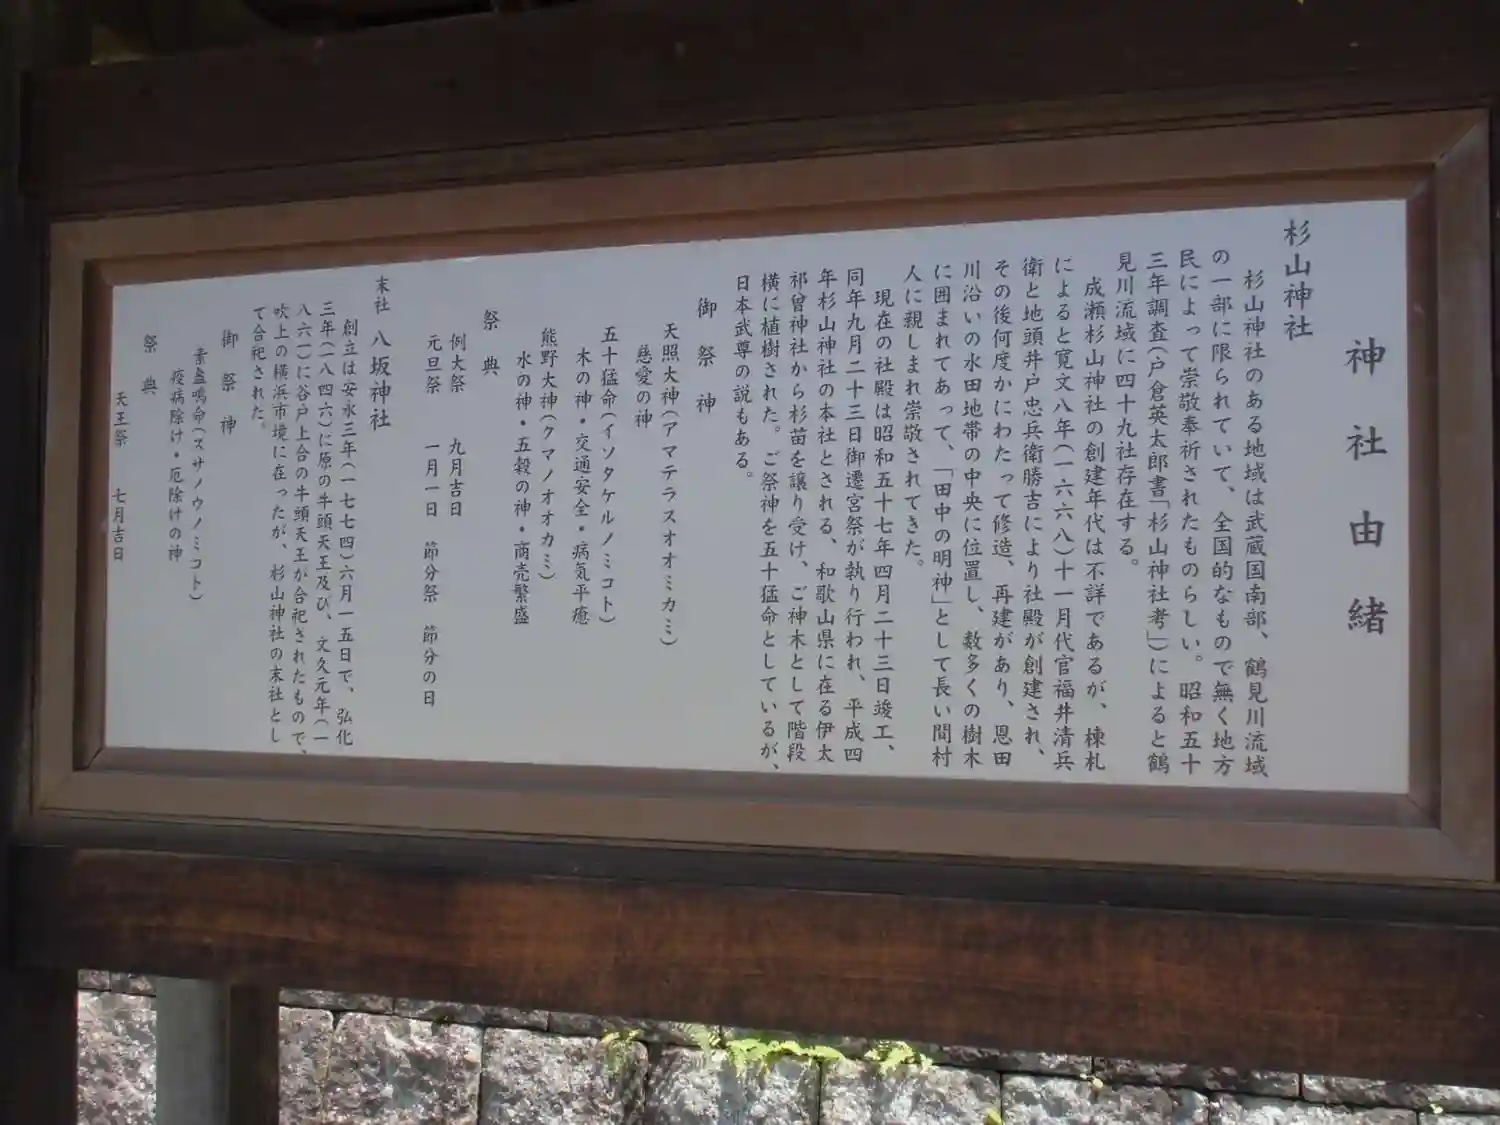 神社由緒
杉山神社
杉山神社のある地域は武蔵国南部、鶴見川流域
の一部に限られていて、全国的なもので無く地方
民によって崇敬奉祈されたものらしい。昭和五十
三年調査(戸倉英太郎書「杉山神社考」)によると鶴
見川流域に四十九社存在する。
成瀬杉山神社の創建年代は不詳であるが、棟札
によると寛文八年(一六六八)十一月代官福井清兵
衛と地頭井戸忠兵衛勝吉により社殿が創建され、
その後何度かにわたって修造、再建があり、恩田
川沿いの水田地帯の中央に位置し、数多くの樹木
に囲まれてあって、「田中の明神」として長い間村
人に親しまれ崇敬されてきた。
現在の社殿は昭和五十七年四月二十三日竣工、
同年九月二十三日御遷宮祭が執り行われ、平成四
年杉山神社の本社とされる、和歌山県に在る伊太
祁曽神社から杉苗を譲り受け、ご神木として階段
横に植樹された。ご祭神を五十猛命としているが、
日本武尊の説もある。
御祭神
天照大神(アマテラスオオミカミ)
慈愛の神
五十猛命(イソタケルノミコト)
木の神・交通安全・病気平癒
熊野大神(クマノオオカミ)
水の神・五穀の神・商売繁盛
祭典
例大祭 九月吉日
元旦祭 一月一日 節分祭 節分の日
末社 八坂神社
創立は安永三年(一七七四)六月一五日で、弘化
三年(一八四六)に原の牛頭天王及び、文久元年(一
八六一)に谷戸上合の牛頭天王が合祀されたもので、
吹上の横浜市境に在ったが、杉山神社の末社とし
て合祀された。
御祭神
素盞鳴命(スサノウノミコト)
疫病除け・厄除けの神
祭典
天王祭 七月吉日